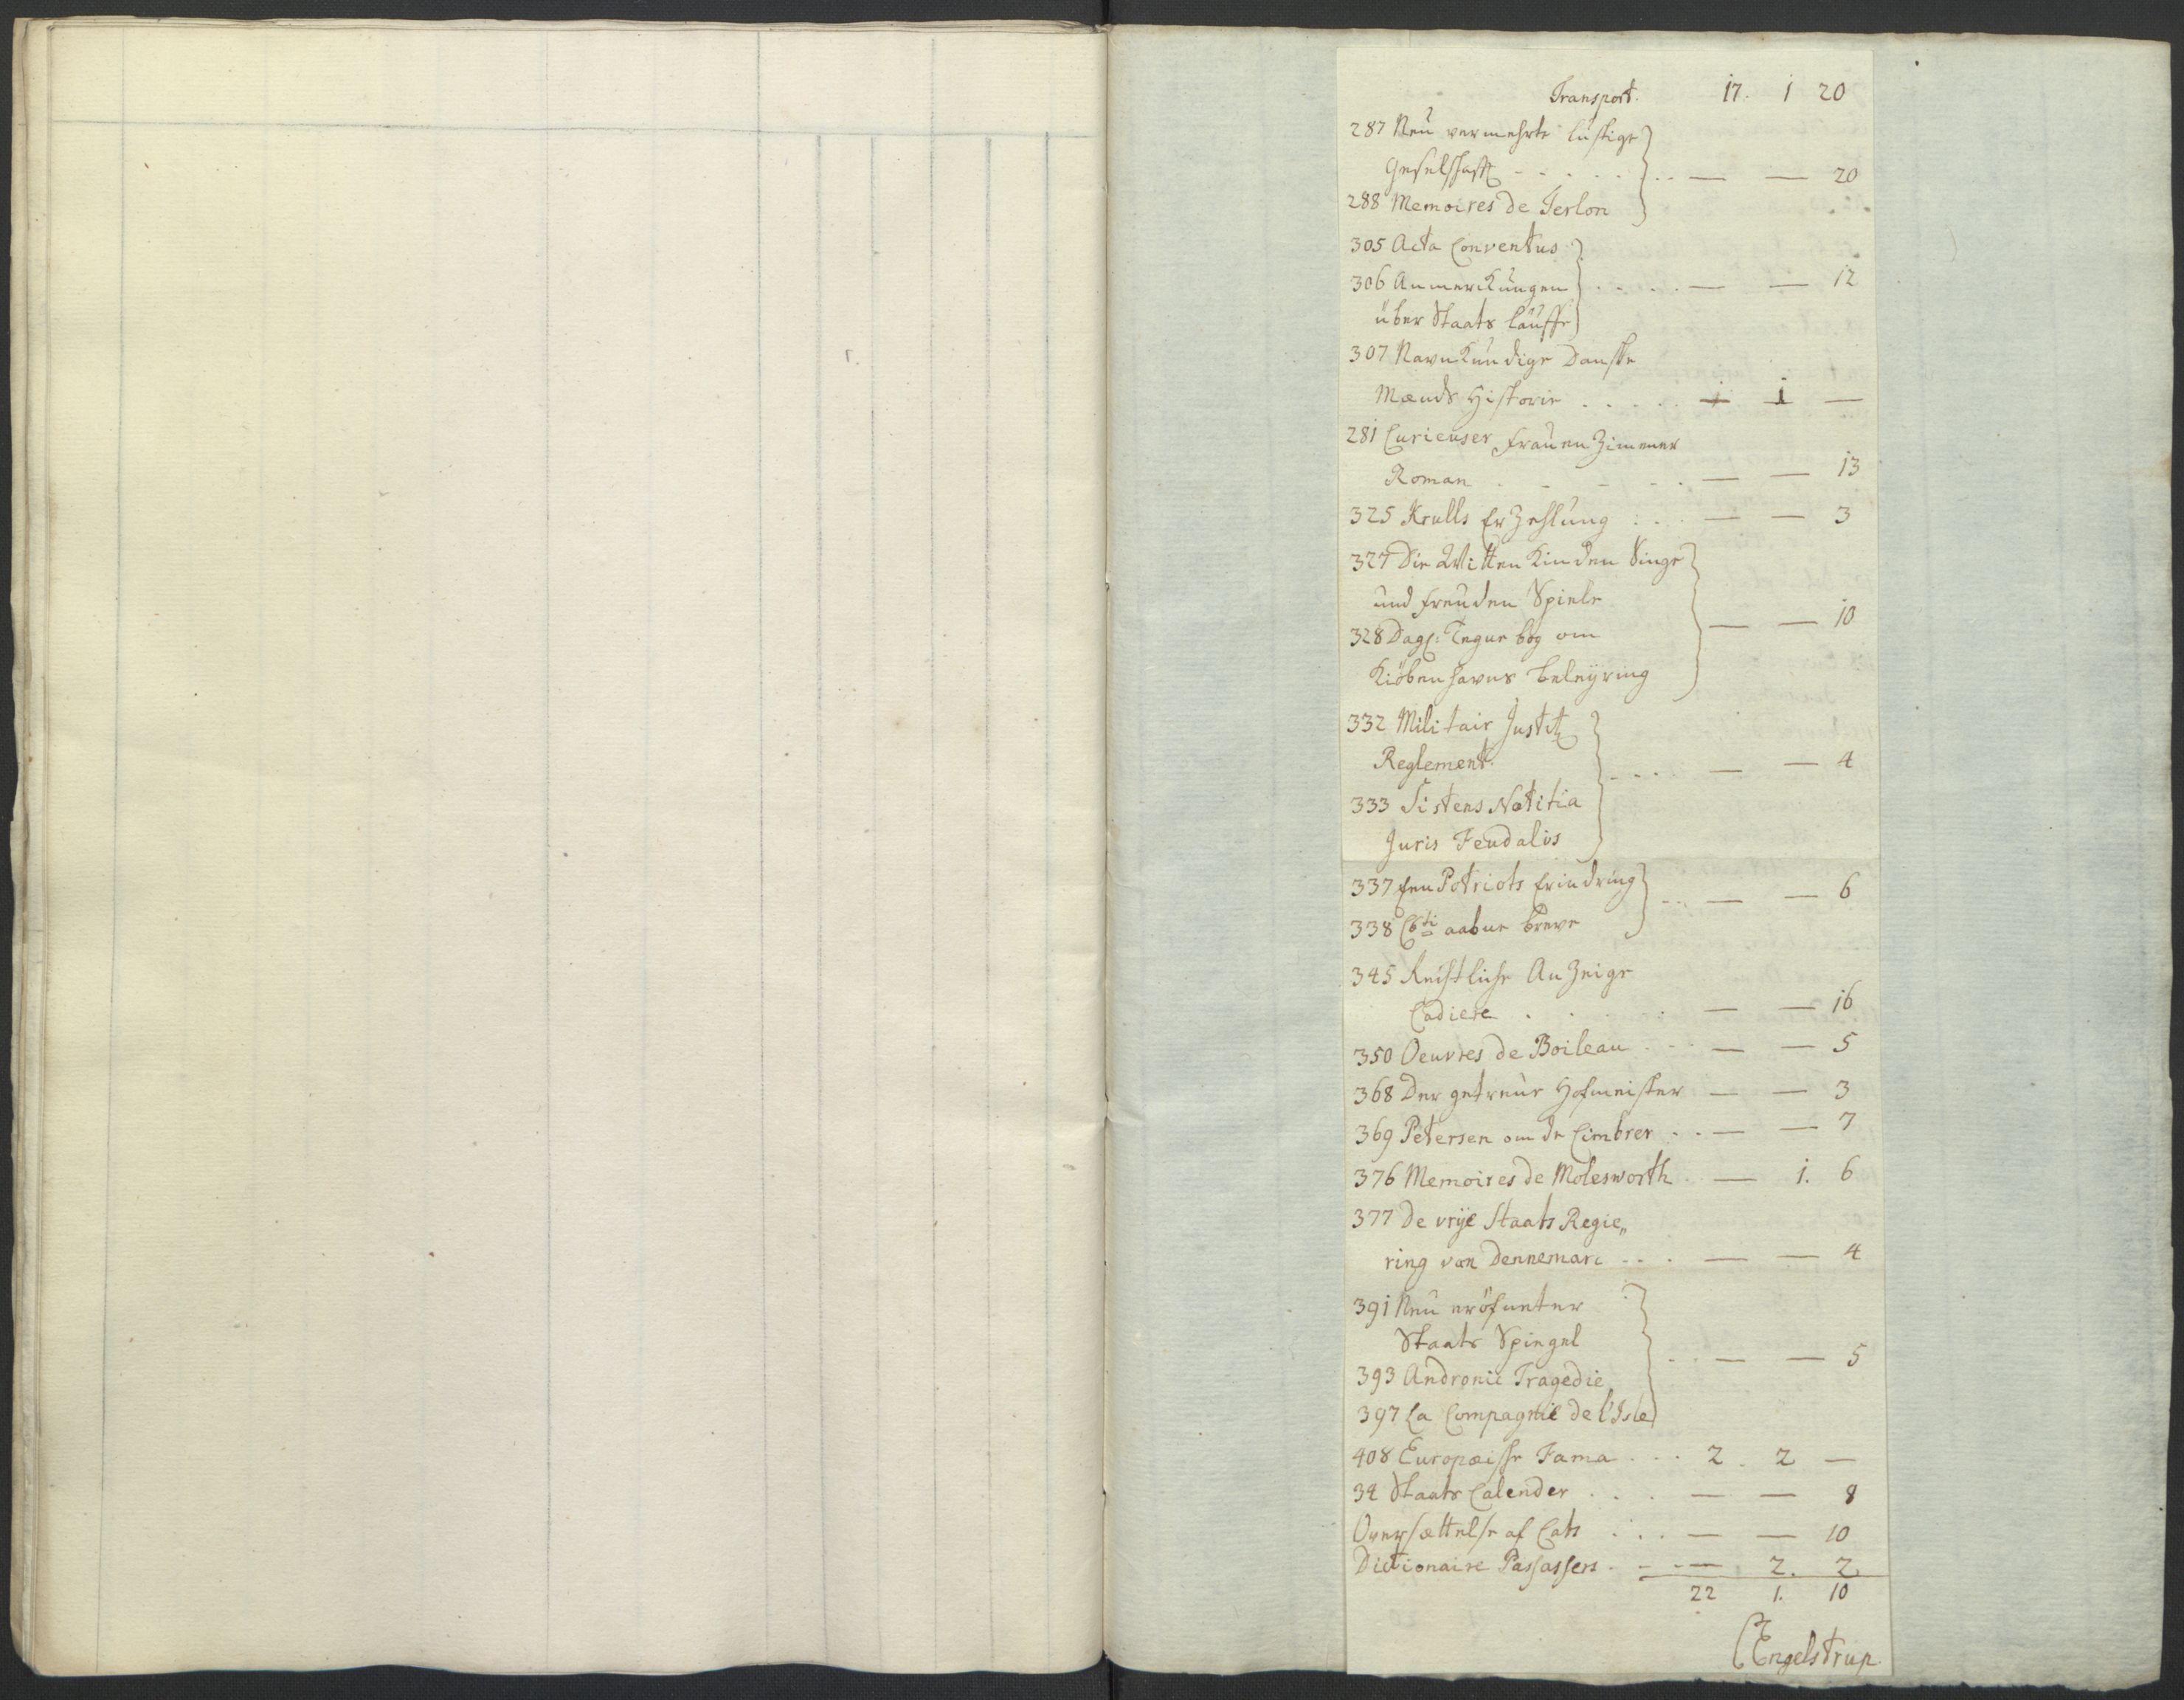 Transport. 17. 1 20
287 Neu vermehrte lustige
Geselschafft - . . . . . . . — — 20
288 Memoires de Terlon
305 Acta Conventus
306 Anmerckungen . . . . — — 12
über Staats läuffe
307 Navnkundige Danske
Mænds Historie . . . . . 1 —
281 Curieuser Frauen Zimmer
Roman . - - - . — — 13
325 Krulls Erzehlung . . . — — 3
327 Die Witten Kinden Singe
und freuden Spiele
— — 10
328 Dagl: Tegne bog om
Kiöbenhavns beleyring
332 Militair Justitz
Reglement. - . . . — — 4
333 Sistens Notitia
Juris Feudalis
337 Een Patriots Erindring
. . — — 6
338 aabne breve
345 Rechtliche Anzeige
Cadiere . . . . . — — 16
350 Oeuvres de Boileau . . . — — 5
368 Der getreue Hofmeister — — 3
369 Petersen om de Cimbrer . . — — 7
376 Memoires de Molesworth . — 1. 6
377 De vrije Staats Regie„
ring van Dennemarc . . . — — 4
391 Neu eröfneter
Staats Spiegel
. . — — 5
393 Andronic Tragedie
397 La Compagnie de l'Isle
408 Europæische Fama . . . 2 . 2 —
34 Staats Calender . . . — — 8
Oversættelse af Cats . . . — — 10
Dictionaire . - - — 2. 2
22 1. 10
CEngelstrup